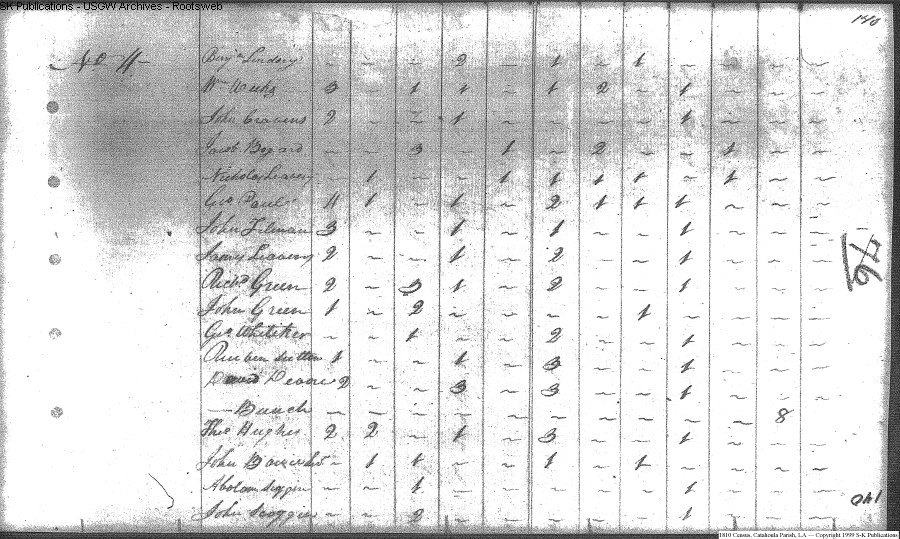 SK Publications - USGW Archives - Rootsweb
140
Benjn Lindsey – – – 2 – 1 – 1 – – – –
Wm Weeks 3 – 1 1 – 1 2 – 1 – – –
John Cravens 2 – – 1 – – – – 1 – – –
Jacob Bogard – – 3 – 1 – 2 – – 1 – –
Nicholas – 1 – – 1 1 1 1 – 1 – –
Geo Paul 4 1 – 1 – 2 1 1 1 – – –
John Tilman 3 – – 1 – 1 – – 1 – – –
James 2 – – 1 – 2 – – 1 – – –
Richd Green 2 – 3 1 – 2 – – 1 – – –
John Green 1 – 2 – – – – 1 – – – –
Geo Whitiker – – 1 – – 2 – – 1 – – –
Reuben 1 – – 1 – 3 – – 1 – – –
David Devore 2 – – 3 – 3 – – 1 – – –
– Bunch – – – – – – – – – – 8 –
Thos Hughes 2 2 – 1 – 3 – – 1 – – –
John – 1 1 – – 1 – 1 – – – –
– – 1 – – – – – 1 – – –
John Scoggin – – 2 – – – – – 1 – – –
176
1810 Census, Catahoula Parish, LA — Copyright 1999 S-K Publications